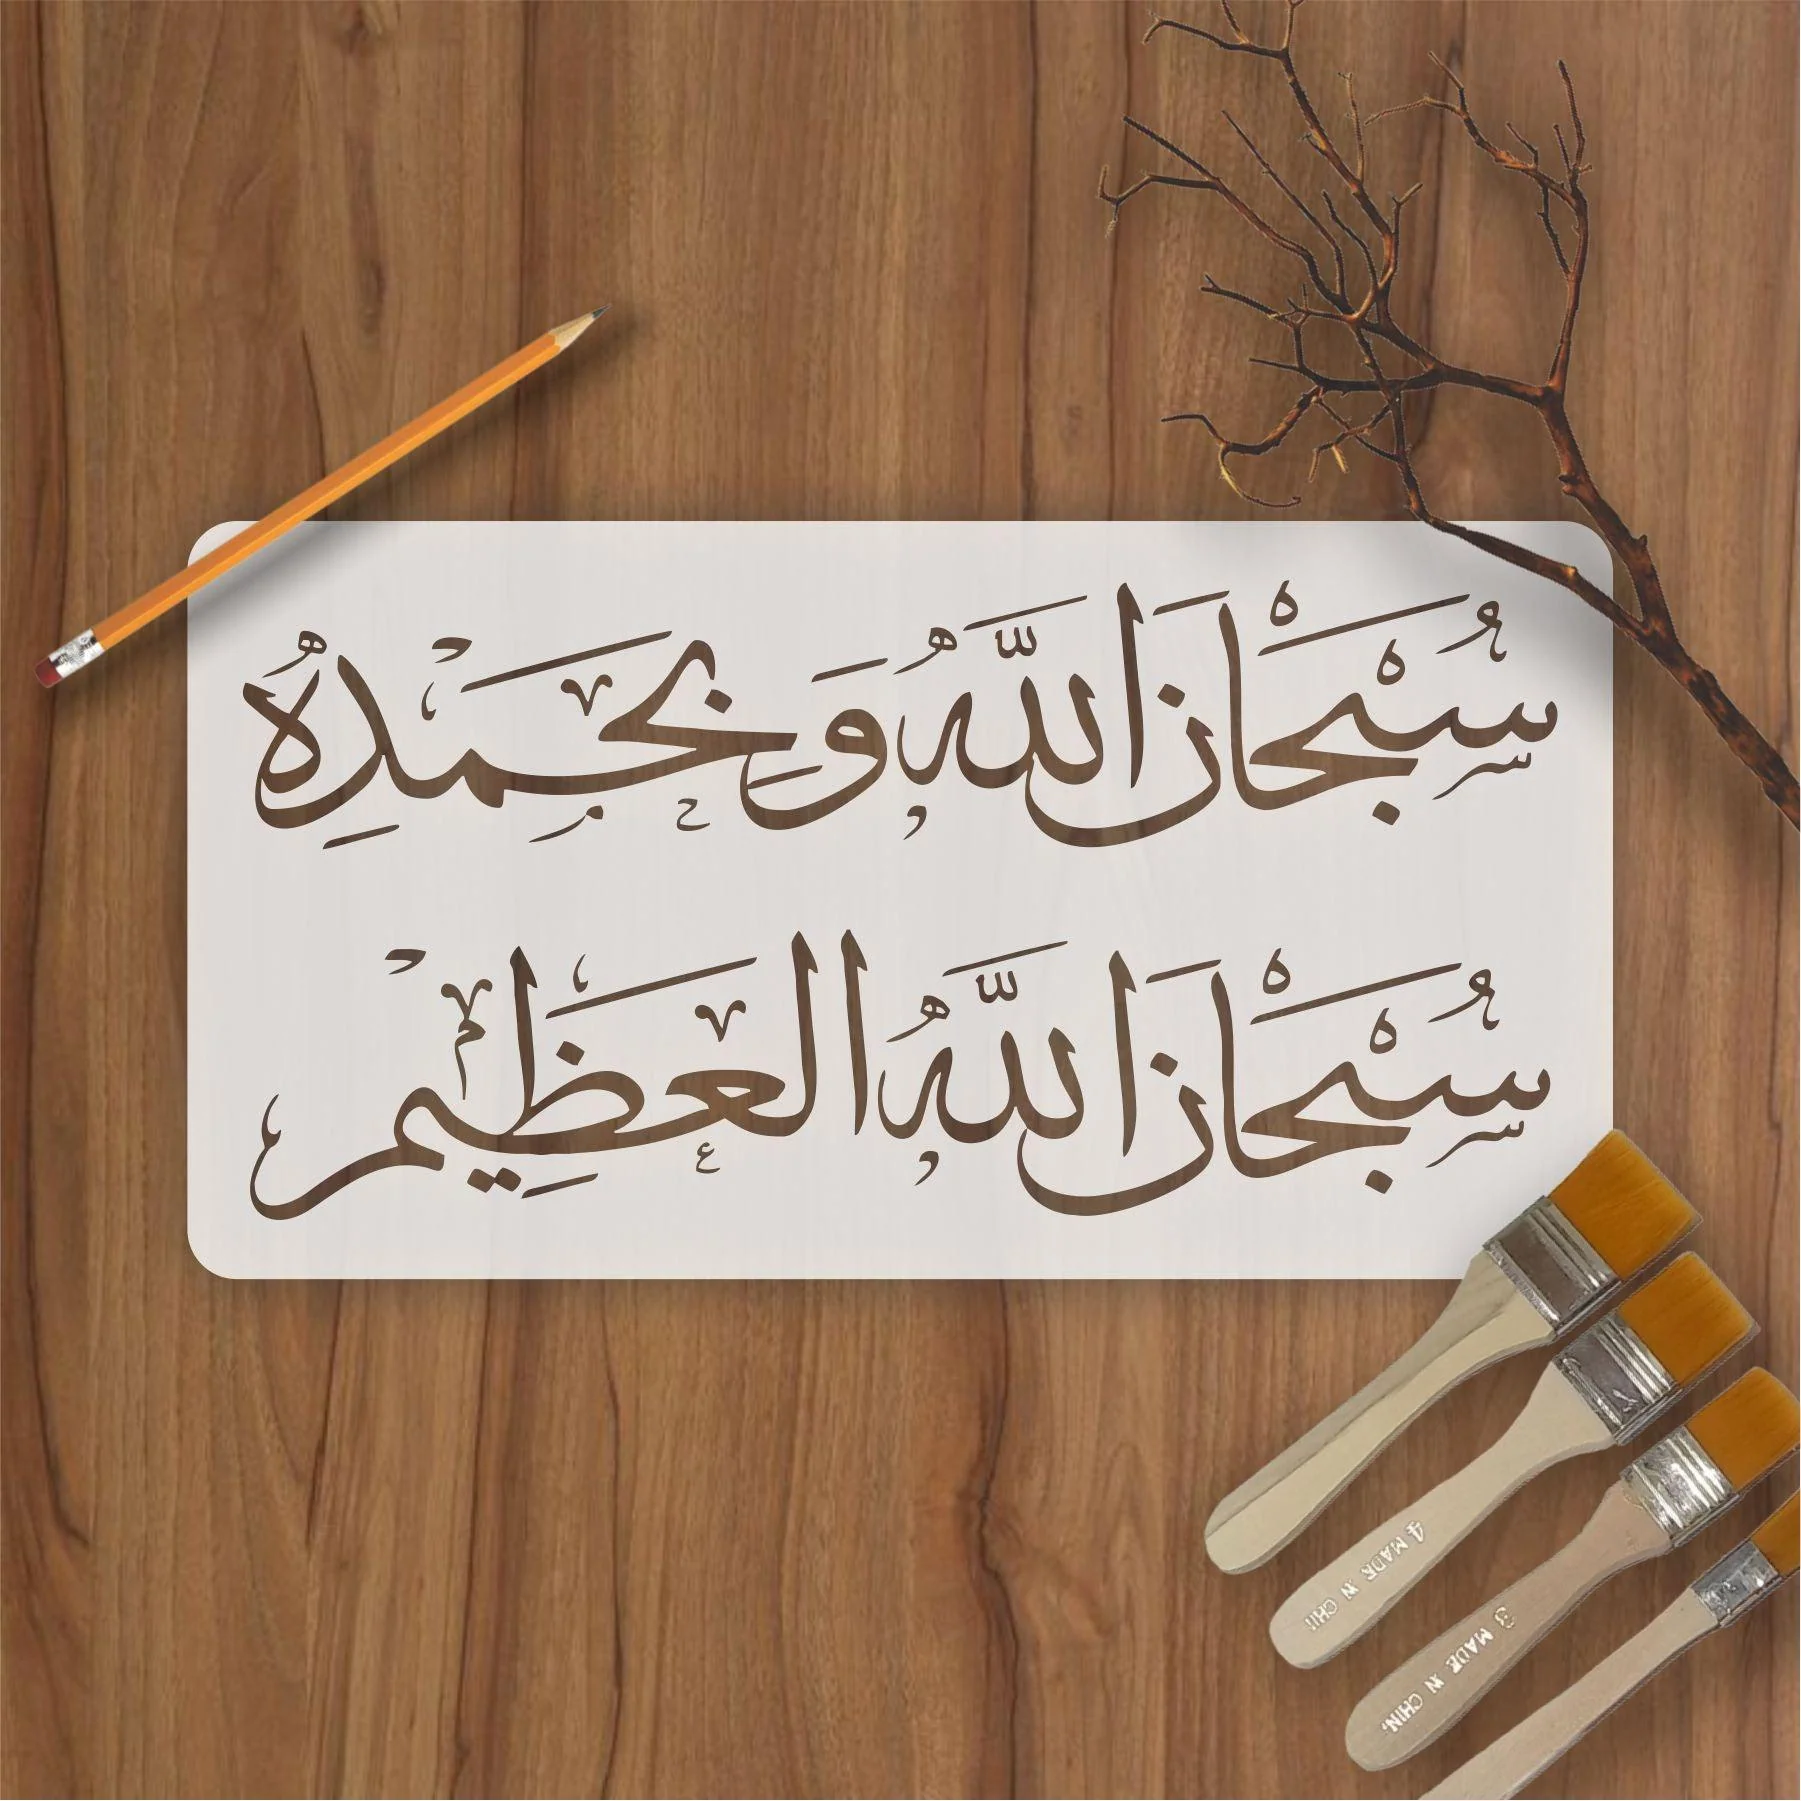 سُبْحَانَ اللَّهُ وَبِحَمْدِهُ
سُبْحَانَ اللَّهُ الْعَظِيمْ
4 MADE IN CHIN
3 MADE IN CHIN